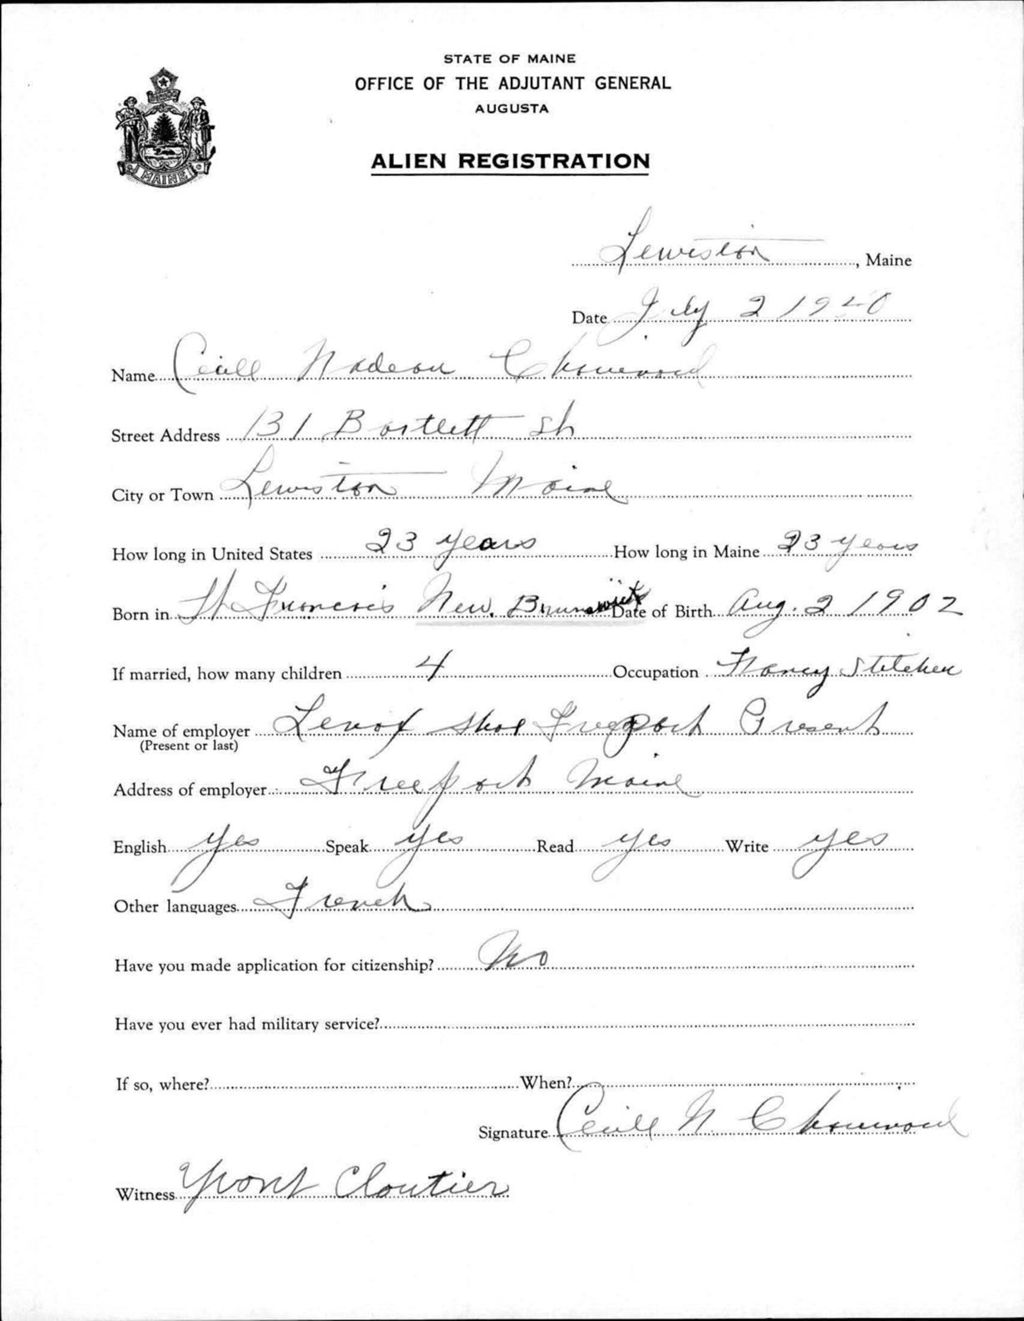 STATE OF MAINE
OFFICE OF THE ADJUTANT GENERAL
AUGUSTA
MAINE
ALIEN REGISTRATION
Lewiston, Maine
Date July 2 1940
Name Cecill Nadeau
Street Address 131 Bartlett St
City or Town Lewiston Maine
How long in United States 23 years How long in Maine 23 years
Born in St Francis New. Brunswick Date of Birth Aug. 2 1902
If married, how many children 4 Occupation Fancy Stitcher
Name of employer Lenox Shoe Freeport Present
(Present or last)
Address of employer Freeport Maine
English yes Speak yes Read yes Write yes
Other languages French
Have you made application for citizenship? No
Have you ever had military service?
If so, where? When?
Signature Cecill N.
Witness Yvont Cloutier